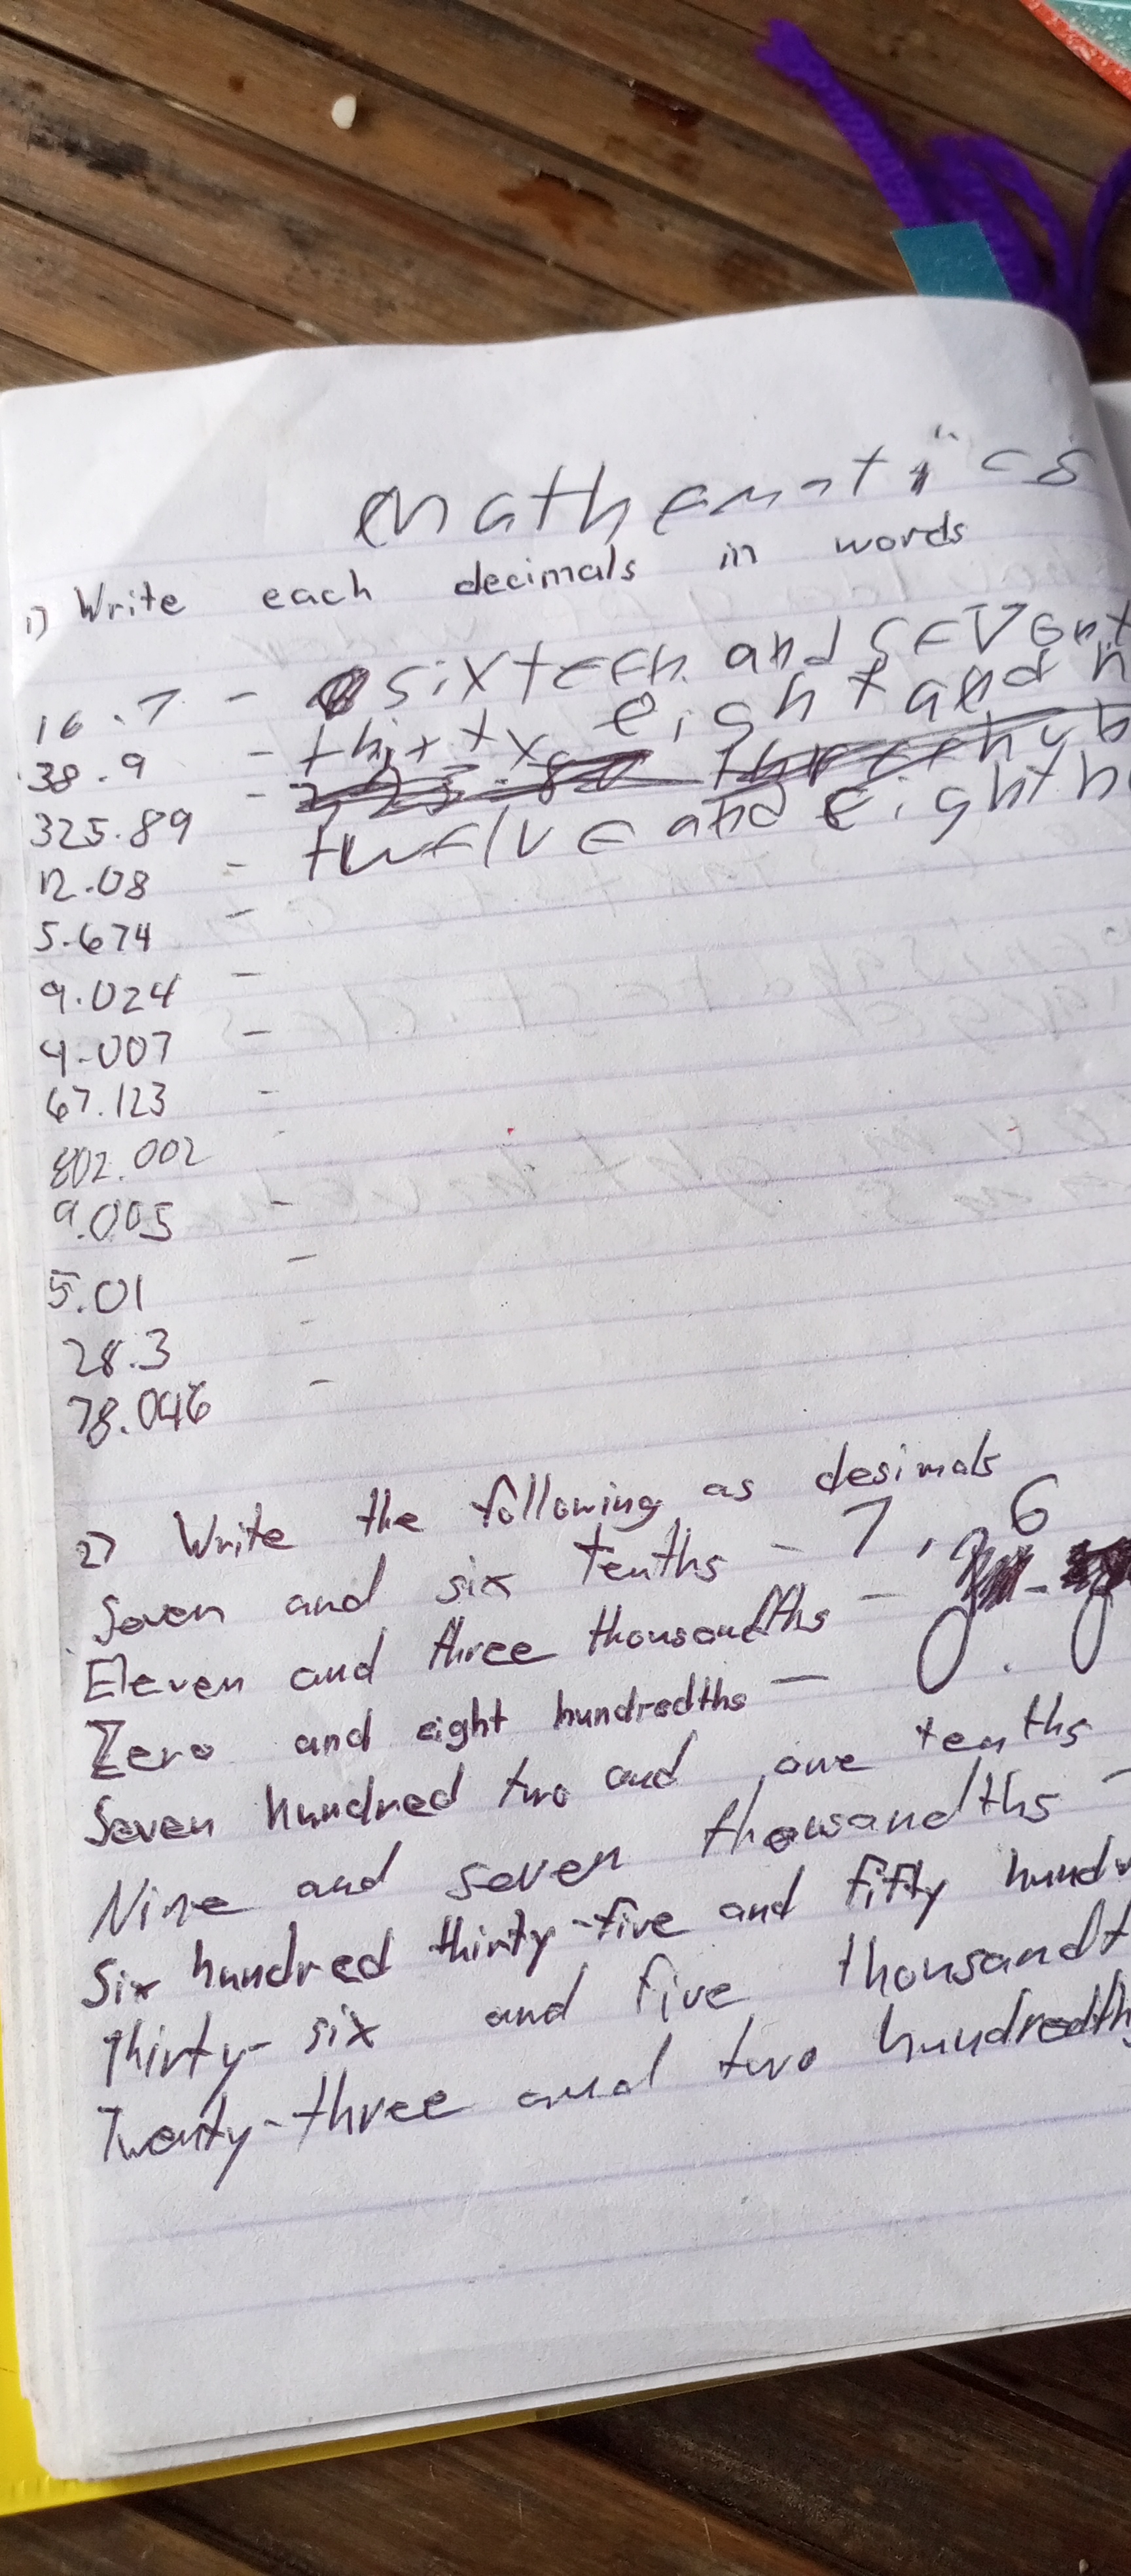 Mathematics
1) Write each decimals in words
16.7 - sixteen and sevent
38.9 - thirty eight and n
325.89 -
12.08 - twelve and eighth
5.674 -
9.024 -
4.007 -
67.123 -
802.002 -
9.005 -
5.01 -
28.3 -
78.046 -
2) Write the following as desimals
Seven and six tenths - 7.6
Eleven and three thousandths -
Zero and eight hundredths - 0.0
Seven hundred two and one tenths
Nine and seven thousandths -
Six hundred thirty-five and fifty hundr
Thirty-six and five thousandt
Twenty-three and two hundredth